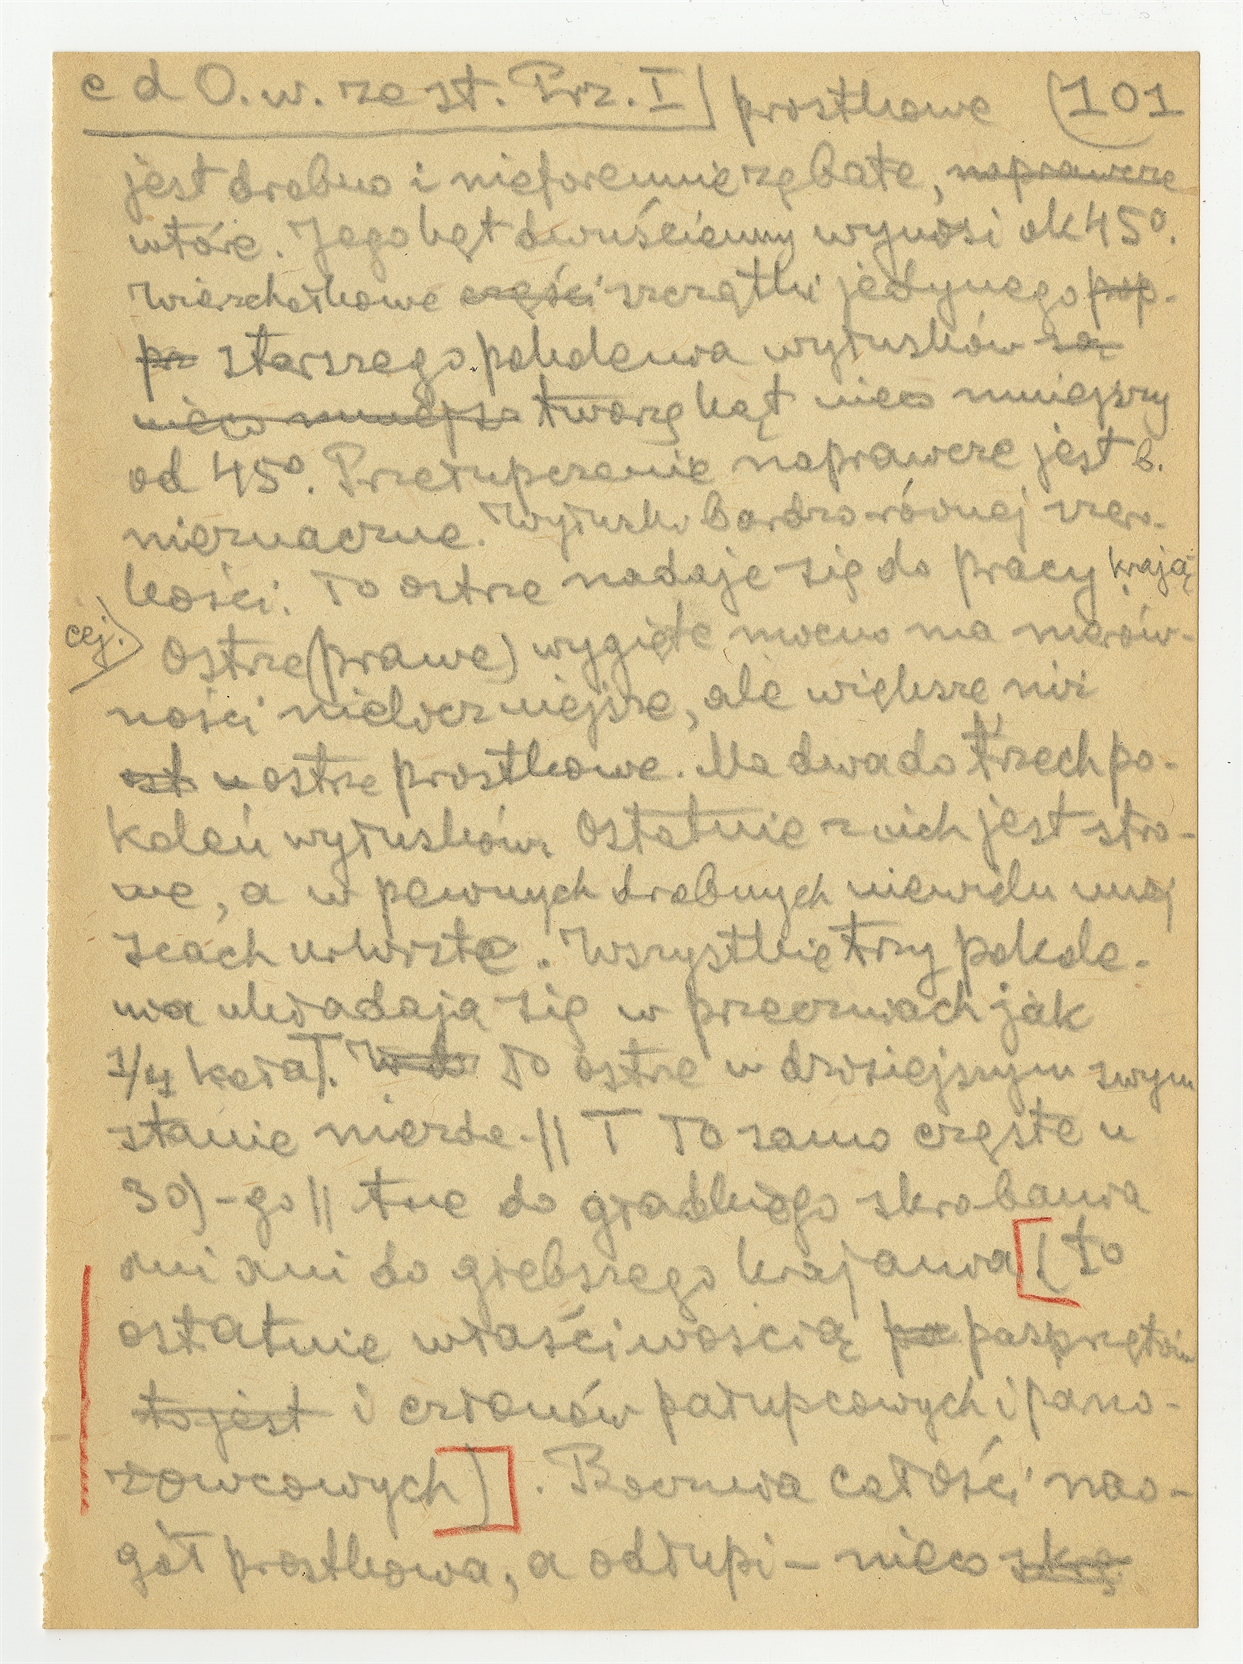 c d O. w. ze st. Prz. I prostkowe (101
jest drobno i nieforemnie zębate, naprawcze
wtóre. Jego kąt dwuścienny wynosi ok 45°.
Wierzchołkowe części szczątki jedynego pop-
po starszego pokolenia wyłusków są
nieco mniejsz tworzą kąt nieco mniejszy
od 45°. Przełupczenie naprawcze jest b.
nieznaczne. Wyłuski bardzo równej szero-
kości. To ostrze nadaje się do pracy krają
cej.)
Ostrze (prawe) wygięte mocno ma nierów-
ności nieliczniejsze, ale większe niż
ost u ostrze prostkowe. Ma dwa do trzech po-
koleń wyłusków. Ostatnie z nich jest stro-
me, a w pewnych drobnych niewielu miej
scach urwiste. Wszystkie trzy pokole-
nia układają się w przecznicach jak
1/4 koła T. W do To ostrze w dzisiejszym swym
stanie nierda- || T To samo częste u
30)-go || tne do gładkiego skrobania
ani ani do głębszego krajania [(to
ostatnie właściwością po pasprzętów
to jest i członów pałupcowych i pano-
żowcowych)]. Bocznia całości nao-
gół prostkowa, a odłupi- nieco skrę